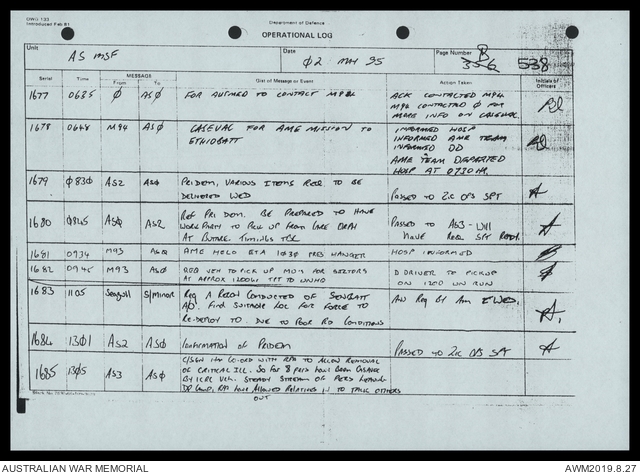 OWD 133
Introduced Feb 81
Department of Defence
OPERATIONAL LOG
Unit
AS MSF
Date
Ø2 MAY 95
Page Number
B
356
538
Serial
Time
MESSAGE
From
To
Gist of Message or Event
Action Taken
Initials of Officers
1677 0635 Ø ASØ FOR AUSMED TO CONTACT MP94
ACK CONTACTED MP94
MP94 CONTACTED Ø FOR
MORE INFO ON CASEVAC
1678 0648 M94 ASØ CASEVAC FOR AME MISSION TO
ETHIOBATT
INFORMED HOSP
INFORMED AME TEAM
INFORMED DD
AME TEAM DEPARTED
HOSP AT 0730 HR.
1679 Ø83Ø AS2 ASØ PRIDEM, VARIOUS ITEMS REQ TO BE
DELIVERED WED
PASSED TO 2IC OPS SPT
1680 Ø845 ASØ AS2 REF PRI DEM. BE PREPARED TO HAVE
WORK PARTY TO PICK UP FROM CARE ORPH
AT BUTARE. TIMINGS TBC
PASSED TO AS3 - WILL
HAVE REQ SPT READY.
1681 0934 M93 ASØ AME HELO ETA 1030 PRES HANGER
HOSP INFORMED
1682 0945 M93 ASØ REQ VEH TO PICK UP MOVT FOR SECTORS
AT APPROX 1200 TPT TO UNHQ
D DRIVER TO PICKUP
ON 1200 UN RUN
1683 1105 Seagull S/MINOR REQ A RECON CONDUCTED OF SENBATT
A/O. FIND SUITABLE LOC FOR FORCE TO
RE-DEPLOY TO. DUE TO POOR RD CONDITIONS
1684 13Ø1 AS2 ASØ INFORMATION OF PRIDEM
PASSED TO 2IC OPS SPT
1685 13Ø5 AS3 ASØ C/SGN HAS CO-ORD WITH RPA TO ALLOW REMOVAL
OF CRITICAL ILL. SO FAR 8 PERS HAVE BEEN CASEVAC
BY ICRC VEH. STEADY STREAM OF PERS LEAVING
DP CAMP, RPA HAVE ALLOWED RELATIVES IN TO TALK OTHERS
OUT
AUSTRALIAN WAR MEMORIAL
AWM2019.8.27